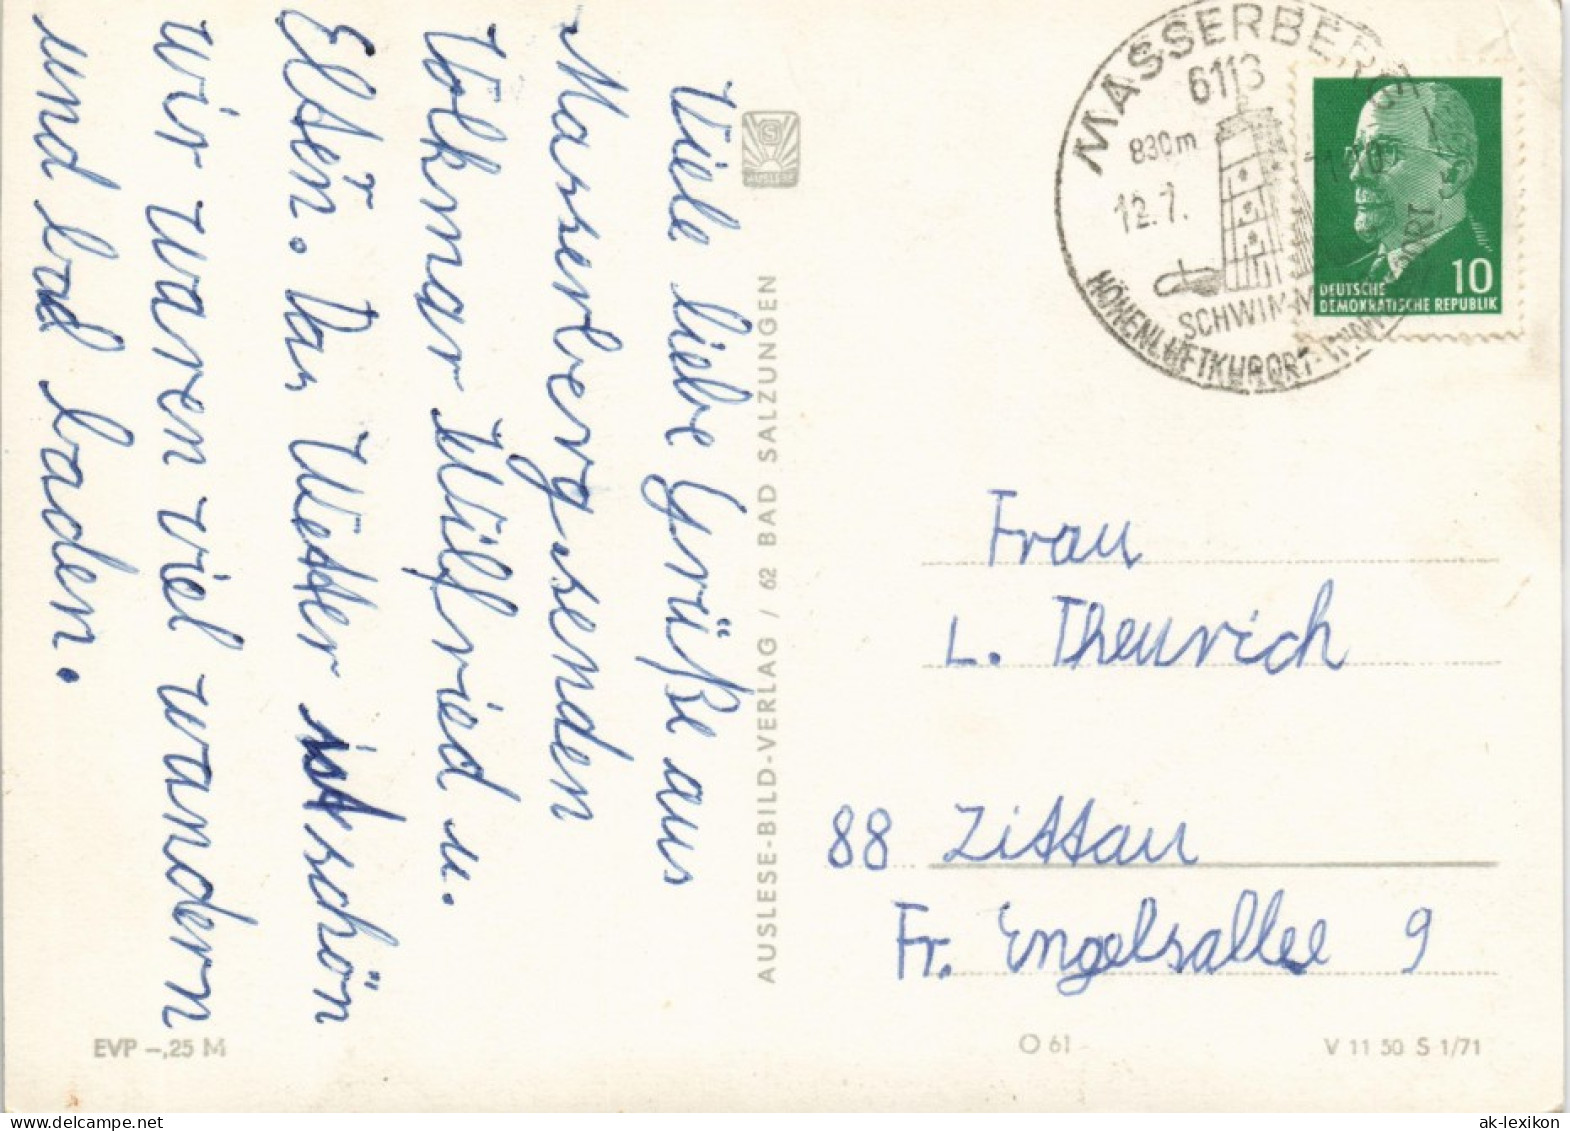 Viele liebe Grüße aus
Masserberg senden
Volkmar Wilfried u.
Eltern. Das Wetter ist schön
wir waren viel wandern
und bad baden.
AUSLESE-BILD-VERLAG / 62 BAD SALZUNGEN
AUSLESE
MASSERBERG
6113
830m
12.7.
SCHWIMM
HÖHENLUFTKURORT
10
DEUTSCHE
DEMOKRATISCHE REPUBLIK
Frau
L. Theurich
88 Zittau
Fr. Engelsallee 9
EVP –,25 M
O 61
V 11 50 S 1/71
ak-lexikon